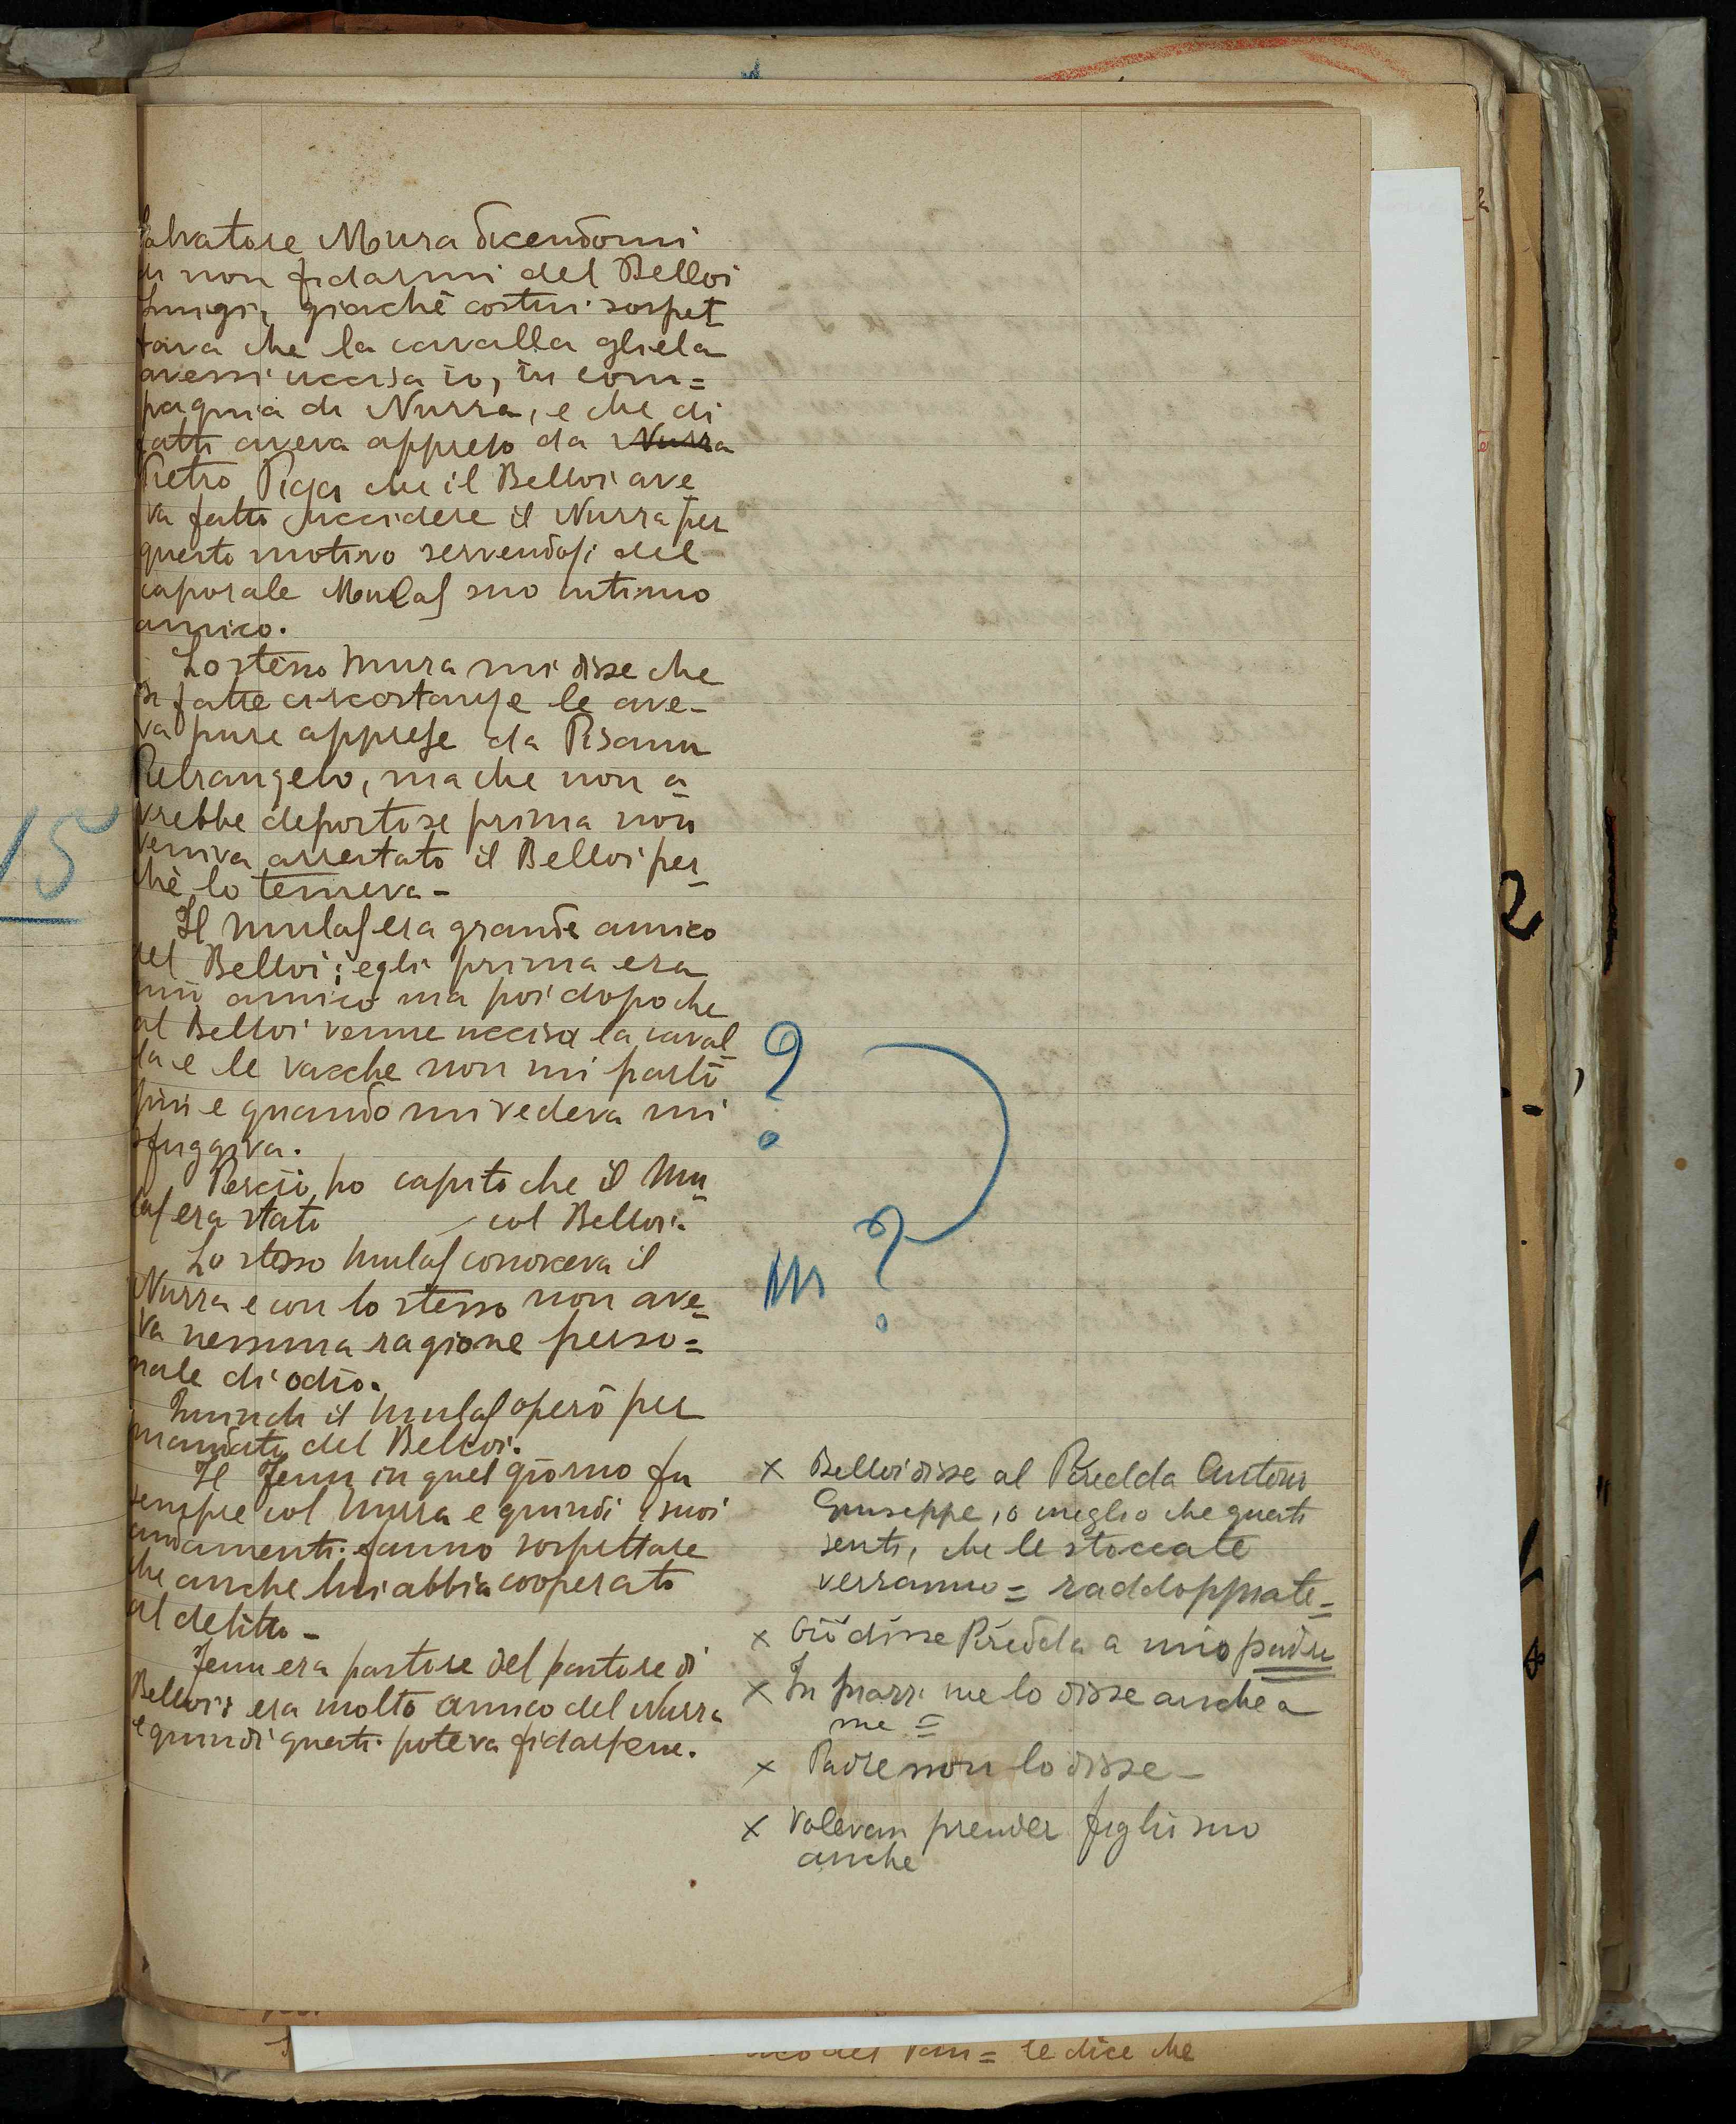 Salvatore Mura dicendomi
di non fidarmi del Belloi
Luigi, giacchè costui sospet_
tava che la cavalla gliela
avessi uccisa io, in com=
pagnia di Nurra, e che di
fatti aveva appreso da Nurra
Pietro Piga che il Belloi ave_
va fatto uccidere il Nurra per
questo motivo servendosi del
caporale Mulas suo intimo
amico.
Lo stesso Mura mi disse che
si fatte circostanze le ave_
va pure apprese da Pisanu
Pietrangelo, ma che non a_
vrebbe deposto se prima non
veniva arrestato il Belloi per_
chè lo temeva -
Il Mulas era grande amico
del Belloi; egli prima era
mio amico ma poi dopo che
al Belloi venne uccisa la caval_
la e le vacche non mi parlò
più e quando mi vedeva mi
sfuggiva.
Perciò ho capito che il Mu_
las era stato col Belloi.
Lo stesso Mulas conosceva il
Nurra e con lo stesso non ave_
va nessuna ragione perso=
nale di odio.
Quindi il Mulas operò per
mandato del Belloi.
Il Jenu in quel giorno fu
sempre col Nurra e quindi i suoi
andamenti fanno sospettare
che anche lui abbia cooperato
al delitto -
Jenu era pastore del pastore di
Belloi; era molto amico del Nurra
e quindi questi poteva fidarsene.
15
?
?
M
x Belloi disse al Piredda Anton
Giuseppe, o meglio che questi
sentì, che le stoccate
verranno = raddoppiate =
x Ciò disse Piredda a mio padre
x me lo disse anche a
me =
x Padre non lo disse -
x Volevan prender figlio suo
anche
le dice che